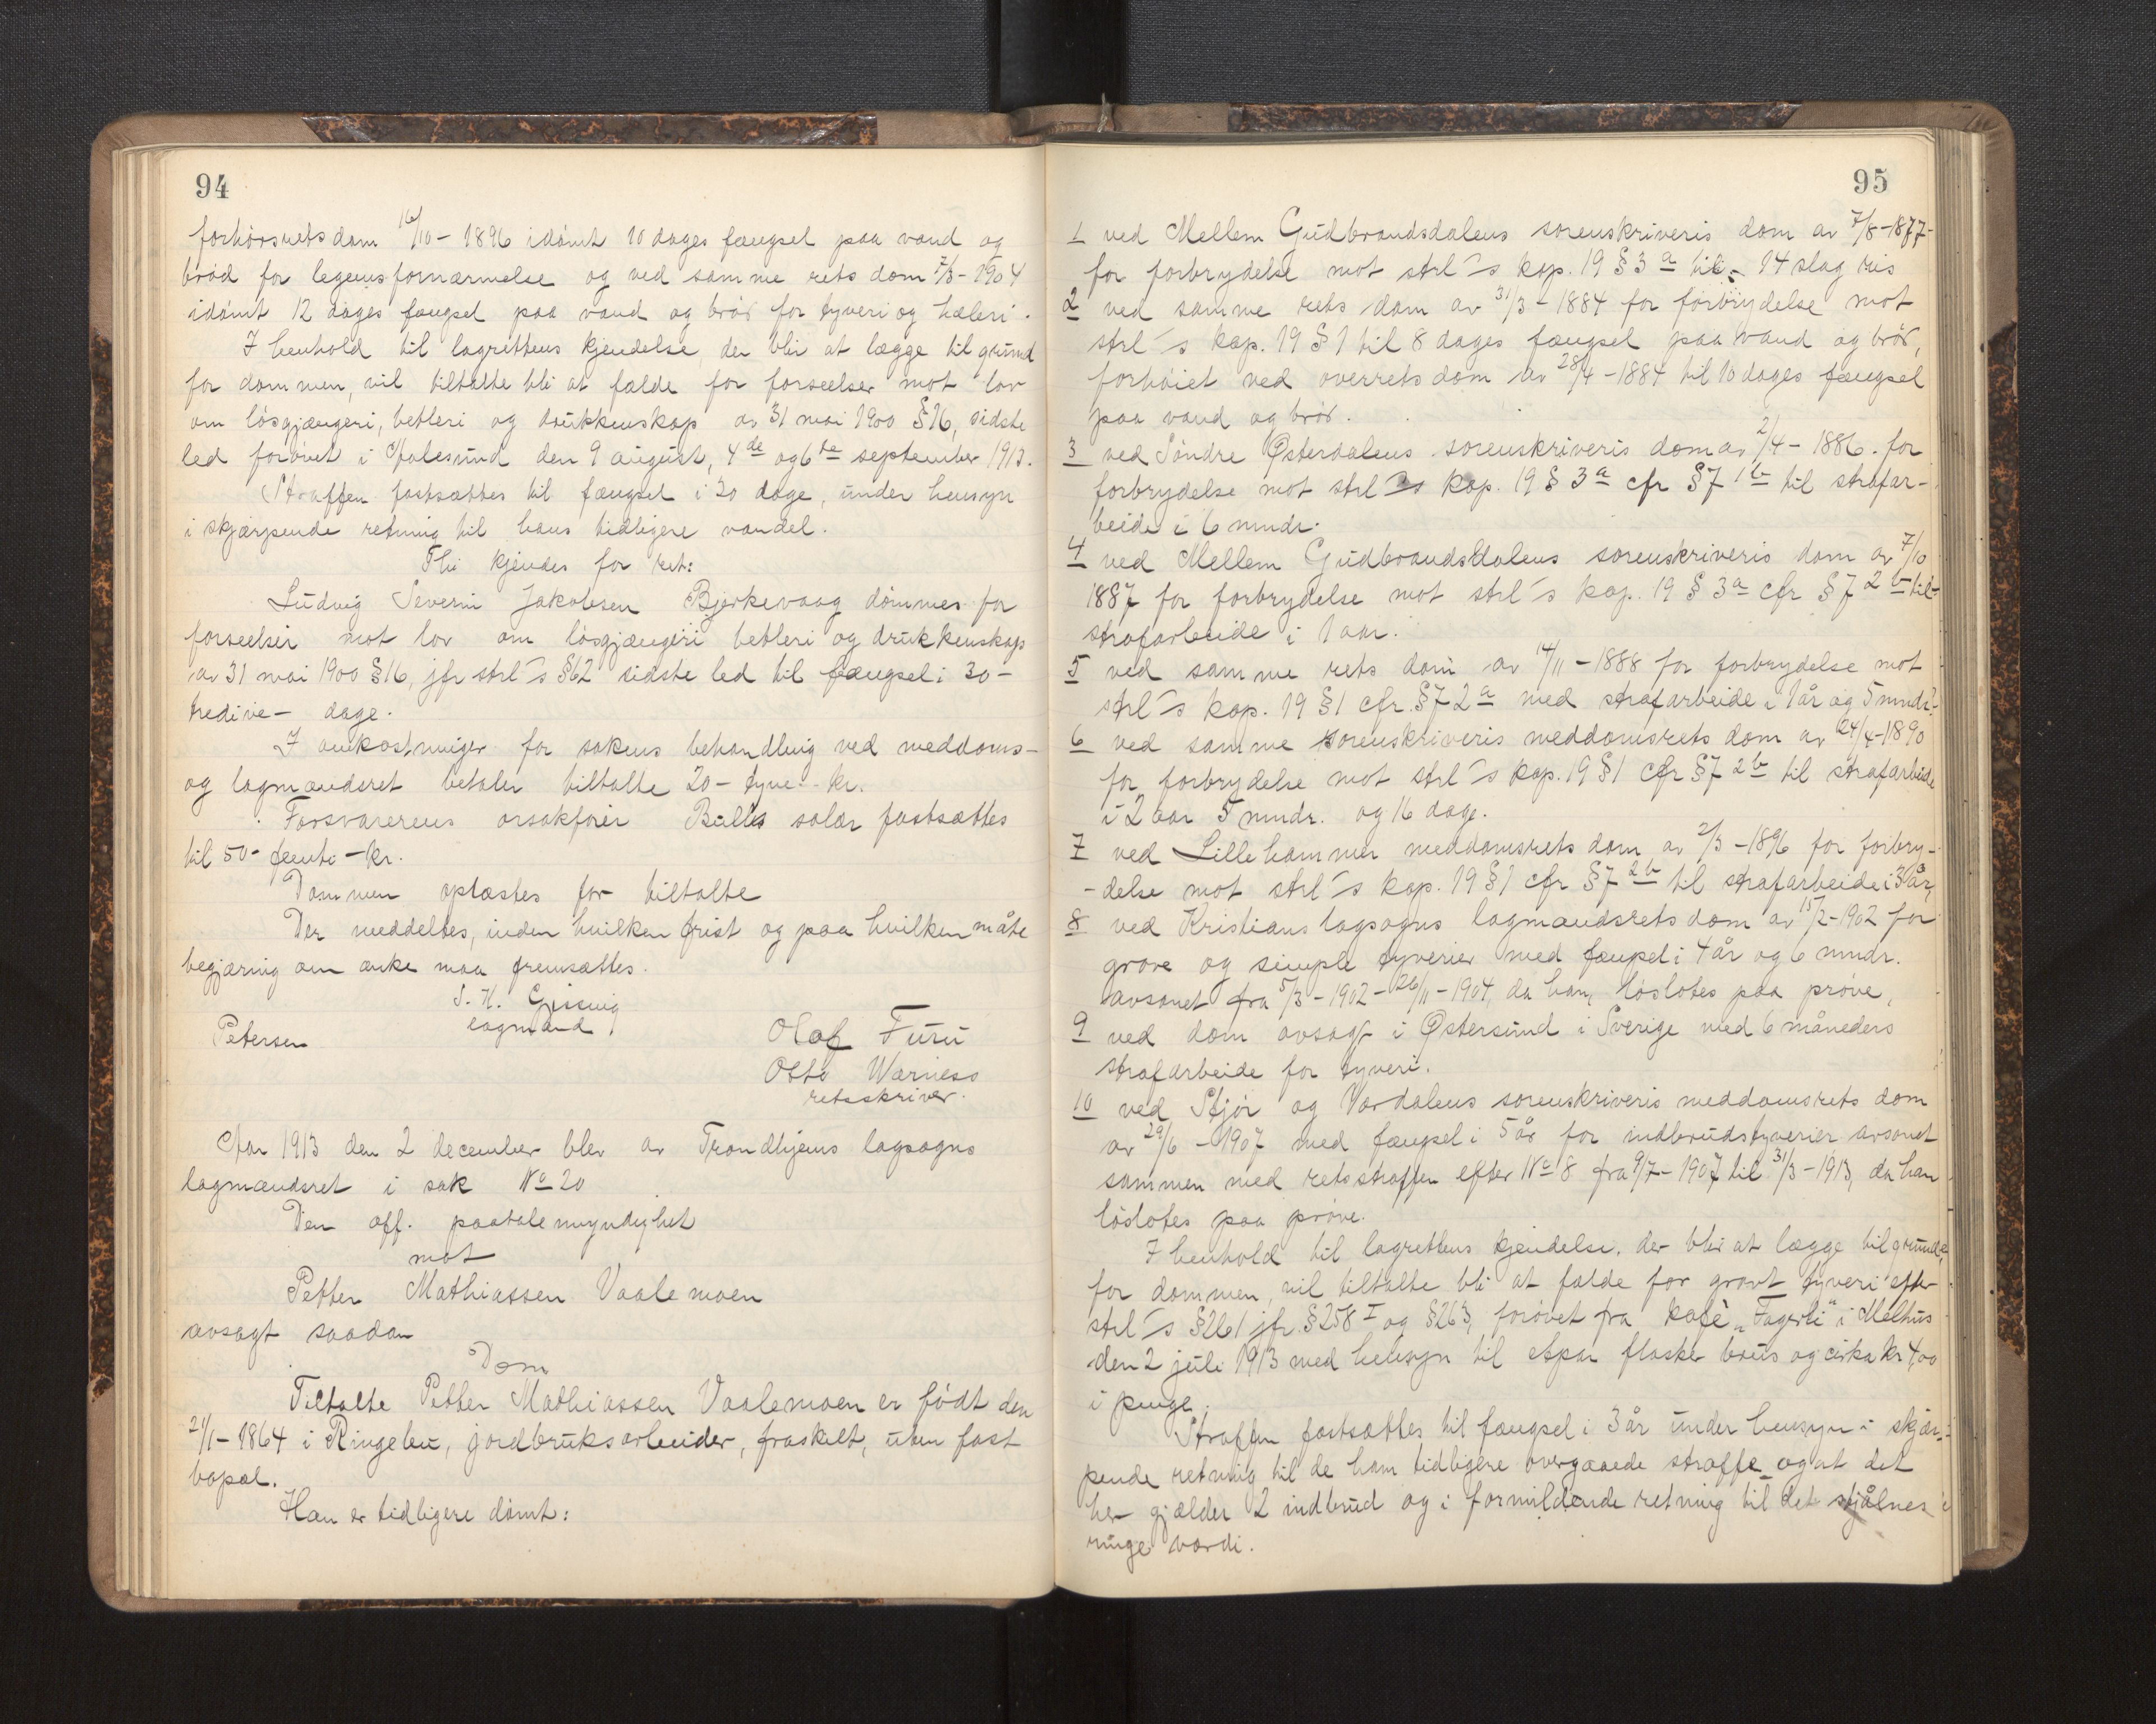 94
forhørsrets dom 16/10-1896 idømt 10 dages fængsel paa vand og
brød for legemsfornærmelse og ved samme rets dom 7/3-1904
idømt 12 dages fængsel paa vand og brød for tyveri og hæleri.
I henhold til lagrettens kjendelse, der blir at lægge til grund
for dommen, vil tiltalte bli at fælde for forseelser mot lov
om løsgjængeri, betleri og drukkenskap av 31 mai 1900 §16, sidste
led forøvet i Aalesund den 9 august, 4de og 6te september 1913.
Straffen fastsættes til fængsel i 30 dage, under hensyn
i skjærpende retning til hans tidligere vandel.
Thi kjendes for ret:
Ludvig Severin Jakobsen Bjerkevaag dømmes for
forseelser mot lov om løsgjængeri betleri og drukkenskap
av 31 mai 1900 §16, jfr strl's §62 sidste led til fængsel i 30-
tredive- dage.
I omkostninger for sakens behandling ved meddoms-
og lagmandsret betaler tiltalte 20- tyve- kr.
Forsvarerens orsakfører Bulls salær fastsættes
til 50- femti- kr.
Dommen oplæstes for tiltalte
Der meddeltes, inden hvilken frist og paa hvilken måte
begjæring om anke maa fremsættes.
S. H. Gissing
lagmand
Petersen
Olaf Furu
Otto Warness
retsskriver.
Aar 1913 den 2 december blev av Trondhjems lagsogns
lagmandsret i sak No 20
Den off. paatalemyndighet
mot
Petter Mathiassen Vaalemoen
avsagt saadan
Dom
Tiltalte Petter Mathiassen Vaalemoen er født den
21/1-1864 i Ringebu, jordbruksarbeider, fraskilt, uten fast
bopæl.
Han er tidligere dømt:
95
1 ved Mellem Gudbrandsdalens sorenskriveris dom av 7/8-1877-
for forbrydelse mot strl's kap. 19 § 3a til 14 slag ris
2 ved samme rets dom av 31/3-1884 for forbrydelse mot
strl's kap. 19 § 1 til 8 dages fængsel paa vand og brød,
forhøiet ved overrets dom av 28/4-1884 til 10 dages fængsel
paa vand og brød.
3 ved Søndre Østerdalens sorenskriveris dom av 2/4-1886. for
forbrydelse mot strl's kap. 19 § 3a cfr § 7 1b til strafar-
beide i 6 mndr.
4 ved Mellem Gudbrandsdalens sorenskriveris dom av 7/10
1887 for forbrydelse mot strl's kap. 19 § 3a cfr § 7 2b til
strafarbeide i 1 aar.
5 ved samme rets dom av 14/11-1888 for forbrydelse mot
strl's kap. 19 §1 cfr. §7 2a med strafarbeide i 1 år og 5 mndr.
6 ved samme sorenskriveris meddomsrets dom av 24/4-1890
for forbrydelse mot strl's kap. 19 §1 cfr §7 2b til strafarbeide
i 2 aar 5 mndr. og 16 dage.
7 ved Lillehammer meddomsrets dom av 2/3-1896 for forbry-
-delse mot strl's kap. 19 §1 cfr §7 2b til strafarbeide i 3 år,
8 ved Kristians lagsogns lagmandsrets dom av 15/2-1902 for
grove og simple tyverier med fængsel i 4 år og 6 mndr.
avsonet fra 5/3-1902-26/11-1904, da han løslotes paa prøve,
9 ved dom avsagt i Østersund i Sverige med 6 måneders
strafarbeide for tyveri.
10 ved Stjør og Værdalens sorenskriveris meddomsrets dom
av 29/6-1907 med fængsel i 5 år for indbrudstyverier avsonet
sammen med retsstraffen efter No 8 fra 9/7-1907 til 31/3-1913, da han
løslotes paa prøve.
I henhold til lagrettens kjendelse, der blir at lægge til grund,
for dommen, vil tiltalte bli at fælde for grovt tyveri efter
strl's §261 jfr. §258 I og §263, forøvet fra kafè „Fagerli" i Melhus
den 2 juli 1913 med hensyn til et par flasker brus og cirka kr 4,00
i penge.
Straffen fastsættes til fængsel i 3 år under hensyn i skjær-
pende retning til de ham tidligere overgaaede straffe og at det
her gjælder 2 indbrud og i formildende retning til det stjålnes
ringe værdi.